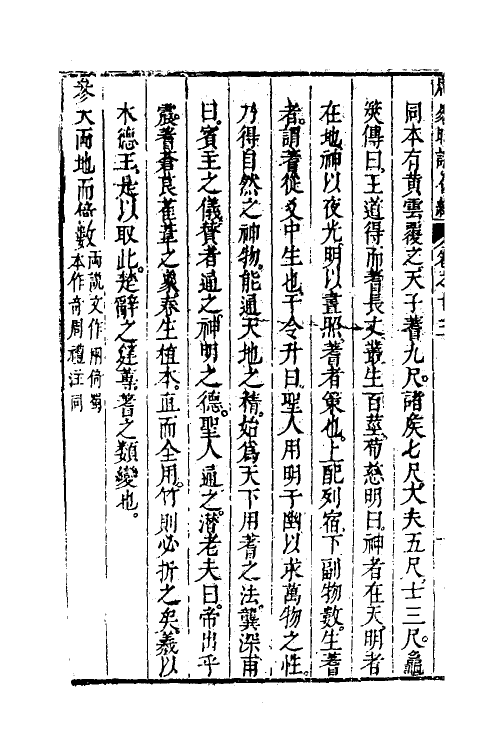 同本有黃雲覆之天子蓍九尺諸矦七尺大夫五尺士三尺龜
筴傳曰王道得而蓍長丈叢生百莖荀慈明曰神者在天明者
在地神以夜光明以晝照蓍者策也上配列宿下副物數生蓍
者謂蓍從爻中生也干令升曰聖人用明于幽以求萬物之性
乃得自然之神物能通天地之精始爲天下用蓍之法龔深甫
曰賓主之儀贊者通之神明之德聖人通之潛老夫曰帝出乎
震蓍蒼筤萑葦之象春生植本直而全用竹則必折之矣羲以
木德王是以取此楚辭之筳蓴蓍之類變也
參天兩地而倚數
兩說文作㒳倚蜀
本作奇周禮注同